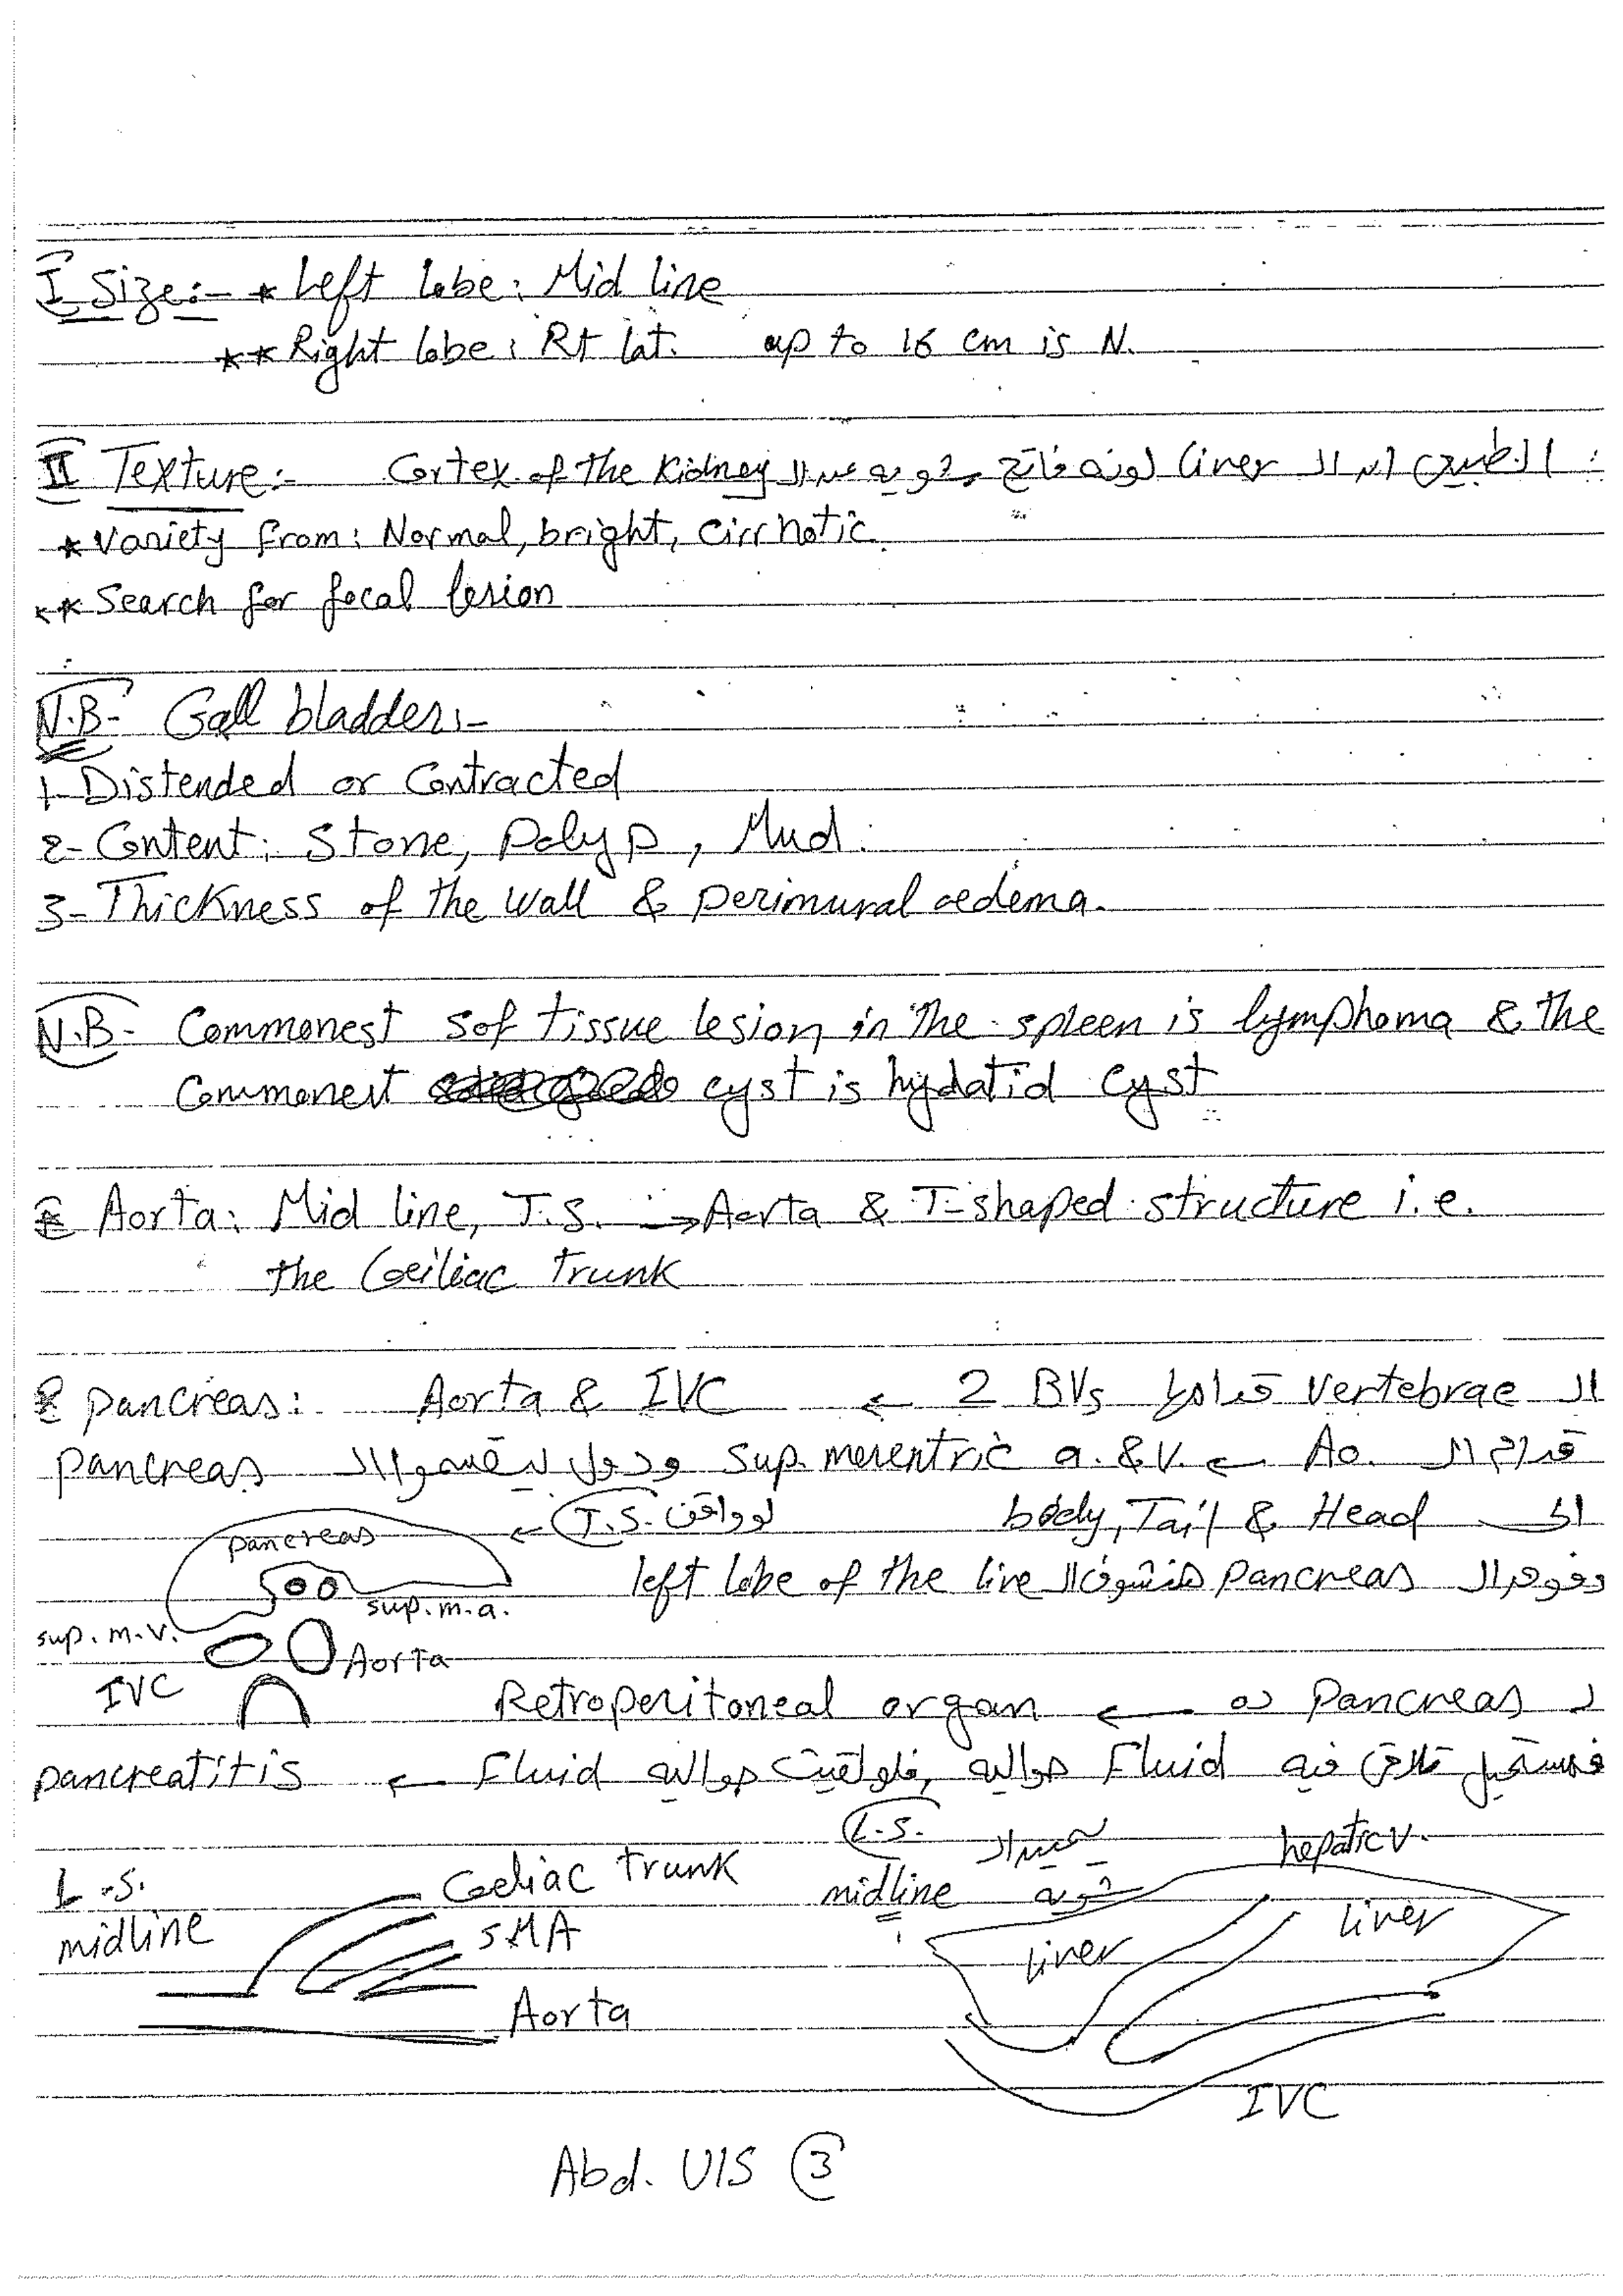 I Size:- * Left lobe: Mid line
** Right lobe: Rt lat. up to 16 cm is N.
II Texture:- الطبيعى ان ال liver لونه فاتح شويه عن ال Cortex of the Kidney
* Variety from: Normal, bright, Cirrhotic.
** Search for focal lesion
N.B- Gall bladder:-
1- Distended or Contracted
2- Content: Stone, Polyp, Mud.
3- Thickness of the wall & perimural oedema.
N.B- Commonest sof tissue lesion in the spleen is lymphoma & the
Commonest cyst is hydatid cyst
* Aorta: Mid line, T.S. → Aorta & T-shaped structure i.e.
the Coeiliac Trunk
* Pancreas: ال Vertebrae قدامها 2 BVs ← Aorta & IVC
قدام ال Ao. ← sup. mesentric a. & v. ودول بيقسموا ال pancreas
الى body, Tail & Head
لو واقف T.S. ←
وفوق ال Pancreas هنشوف ال left lobe of the live
pancreas
sup. m. a.
sup. m. v.
Aorta
IVC
Pancreas ← Retroperitoneal organ
فمستحيل تلاقى فيه Fluid حواليه, فلو لقيت حواليه Fluid ← pancreatitis
L.S.
midline
Coeliac trunk
SMA
Aorta
L.S.
midline شويه
hepatic v.
liver
liver
IVC
Abd. U/S 3